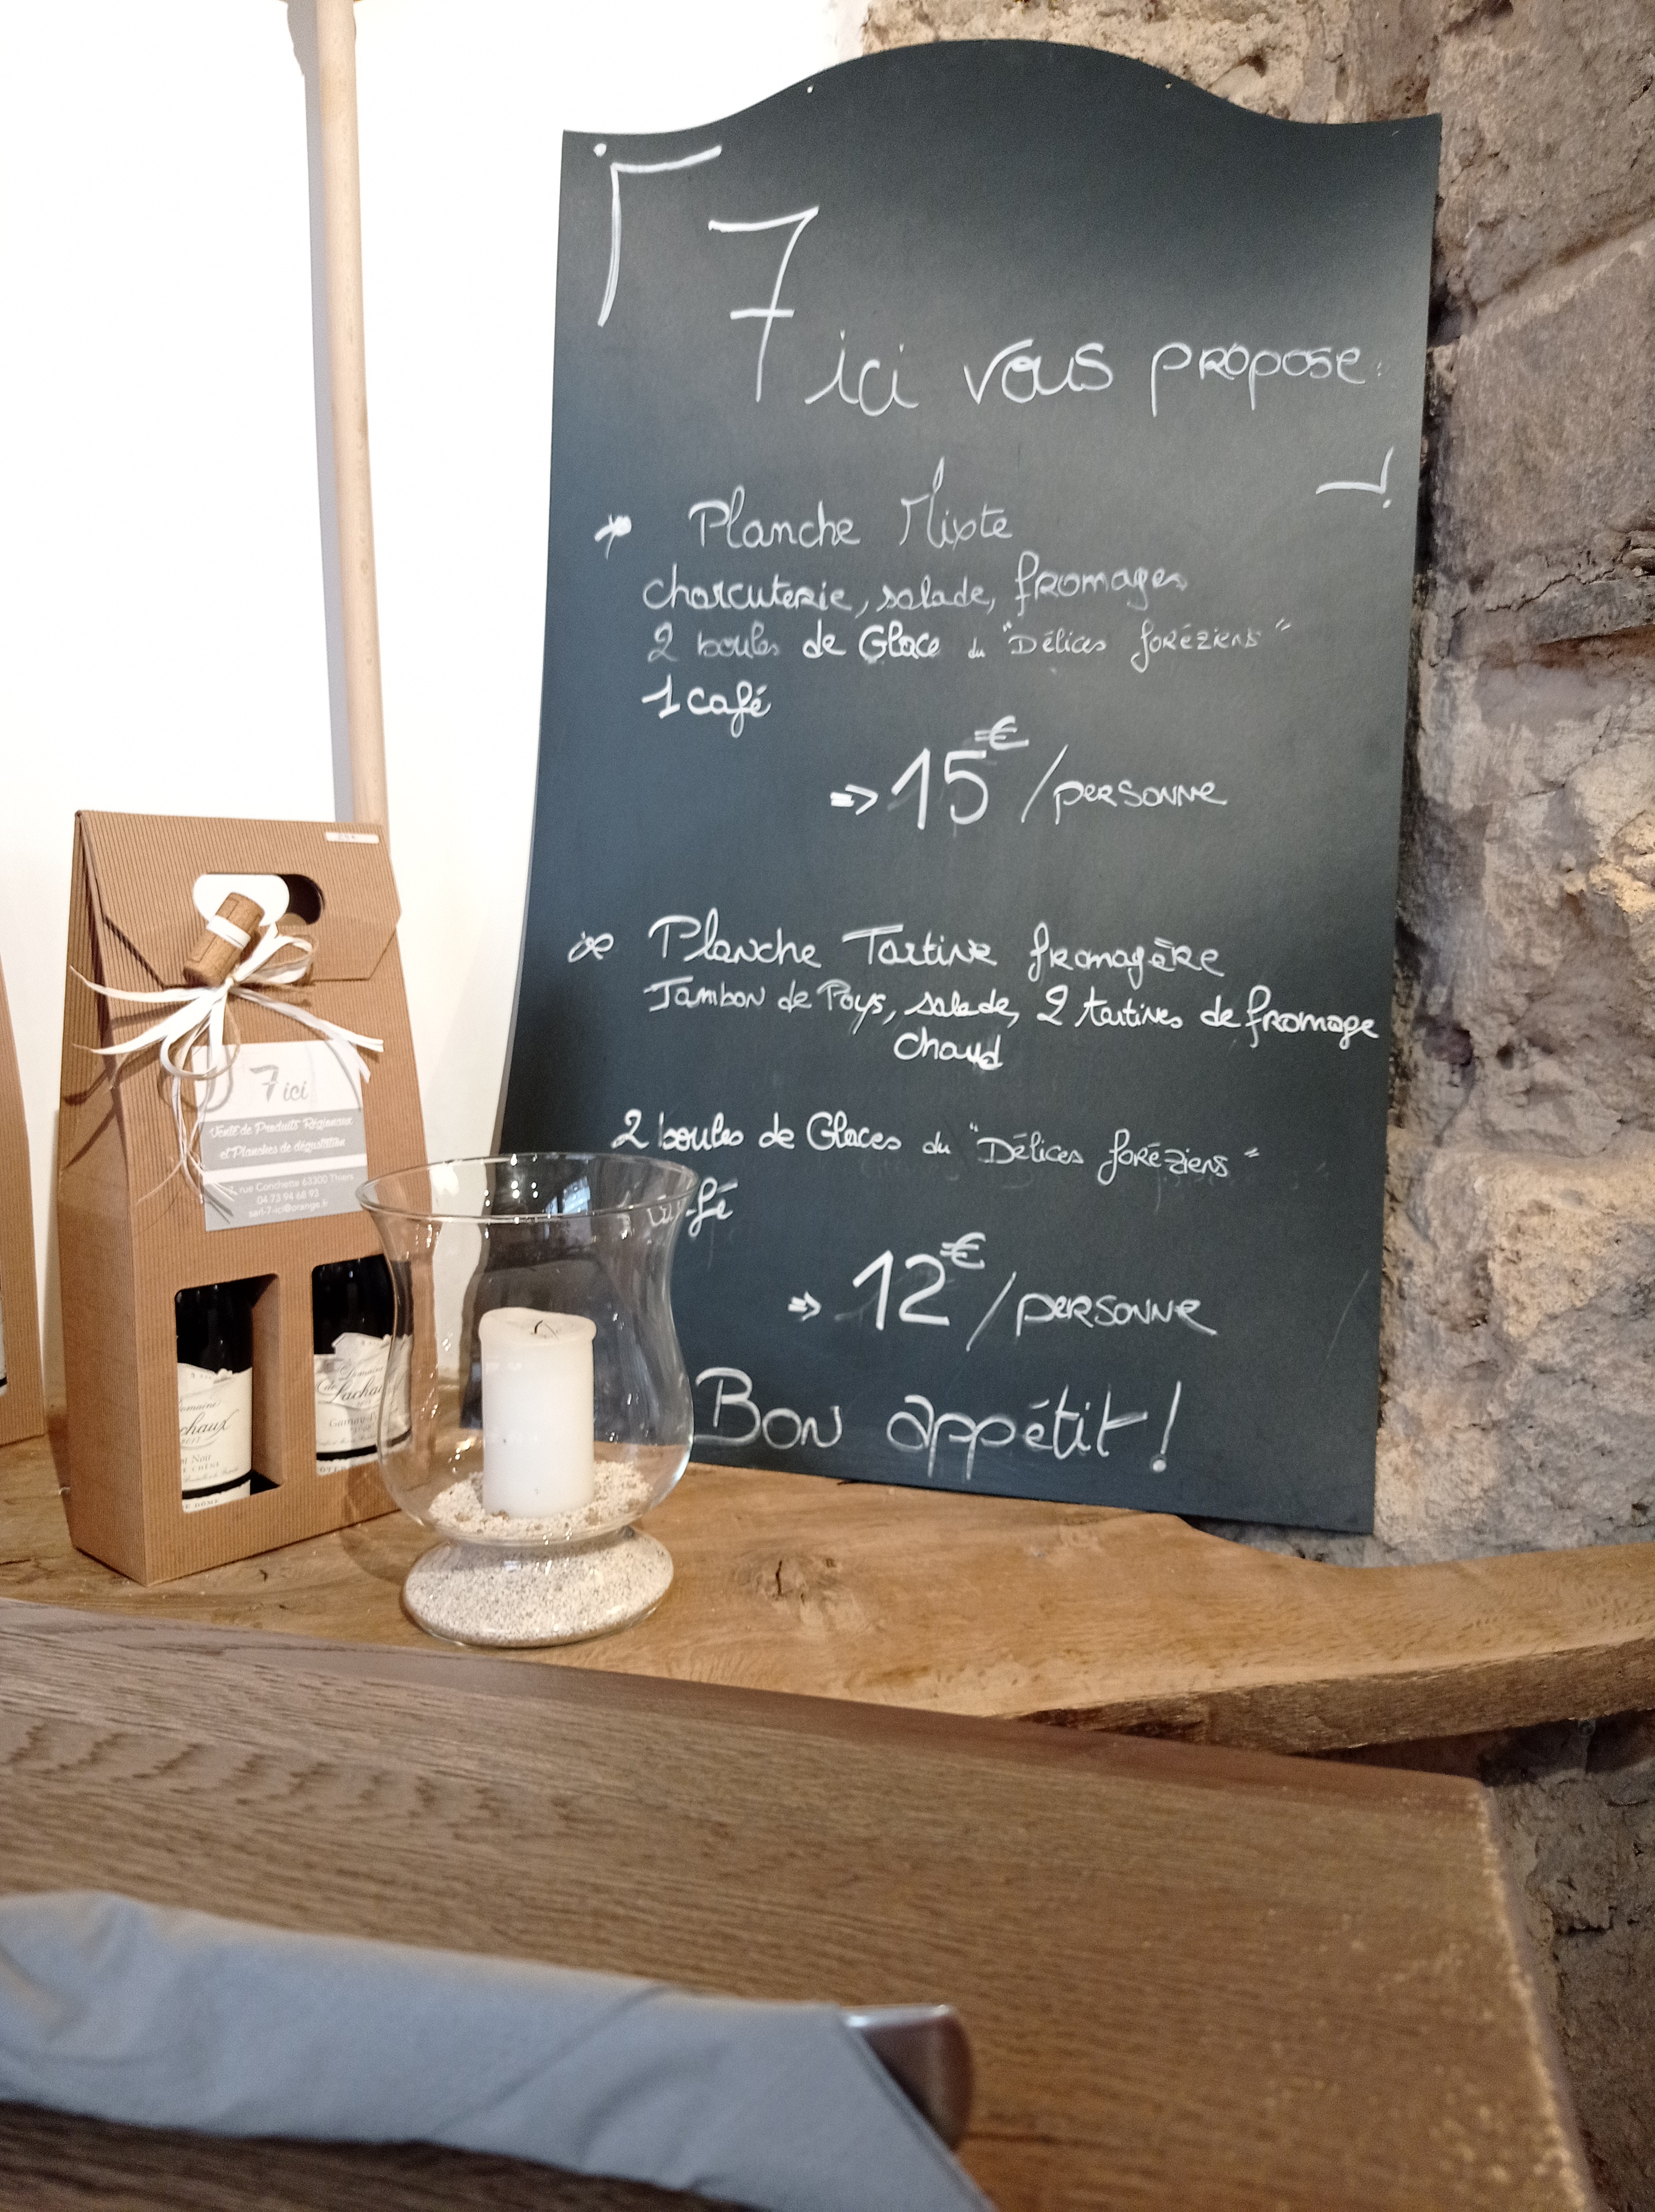 7 ici vous propose:
Planche Mixte
charcuterie, salade, fromages
2 boules de Glace du "Délices foréziens"
1 café
=> 15€/personne
Planche Tartine fromagère
Jambon de Pays, salade, 2 tartines de fromage
chaud
2 boules de Glaces du "Délices foréziens"
=> 12€/personne
Bon appétit!
7 ici
Vente de Produits Régionaux
et Planches de dégustation
rue Conchette 63300 Thiers
04 73 94 68 93
sarl-7-ici@orange.fr
Domaine